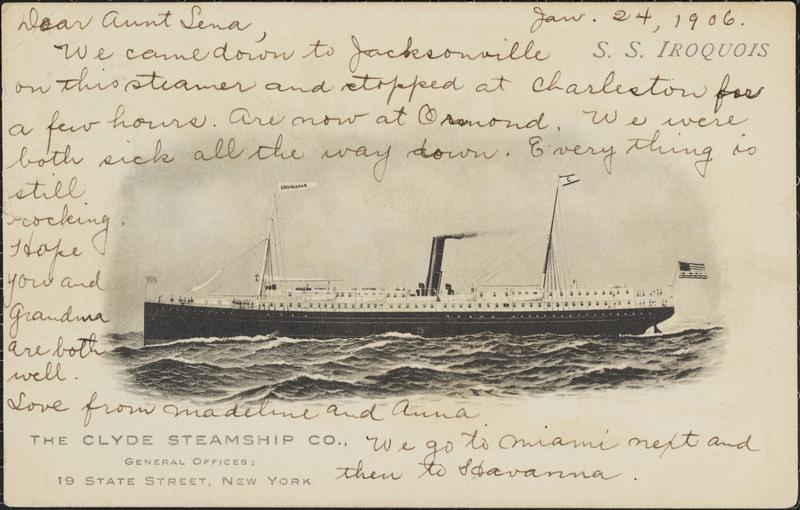 Jan. 24, 1906.
Dear Aunt Lena,
We came down to Jacksonville
S. S. IROQUOIS
on this steamer and stopped at Charleston for
a few hours. Are now at Ormond. We were
both sick all the way down. Every thing is
still
rocking.
Hope
you and
Grandma
are both
well.
Love from Madeline and Anna
IROQUOIS
C
THE CLYDE STEAMSHIP CO.,
GENERAL OFFICES;
19 STATE STREET, NEW YORK.
We go to Miami next and
then to Havanna.